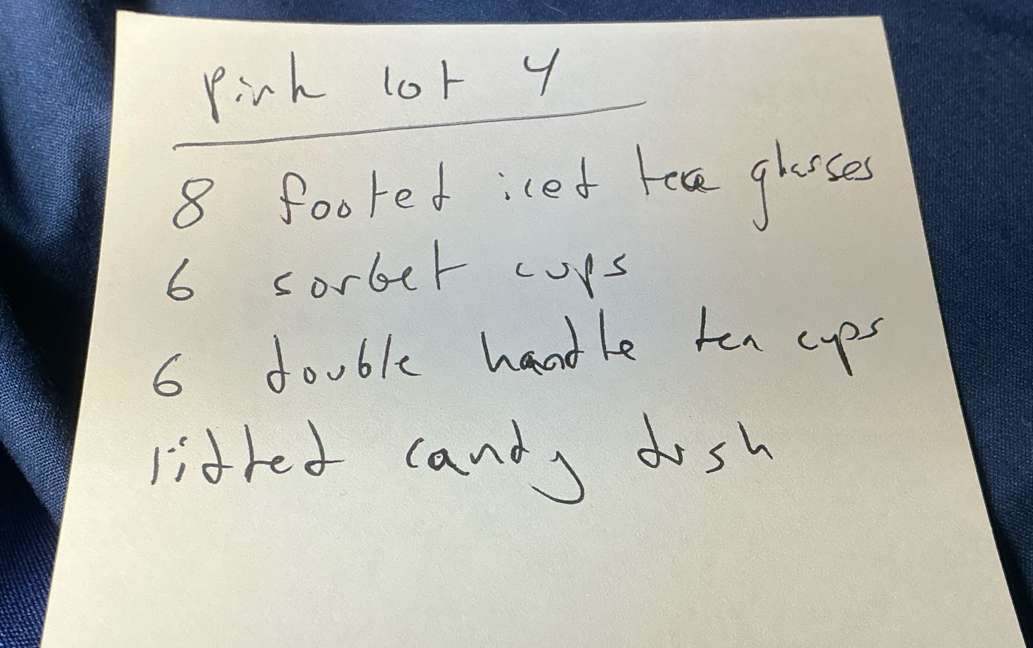 Pink lot 4
8 footed iced tea glasses
6 sorbet cups
6 double handle tea cups
lidded candy dish